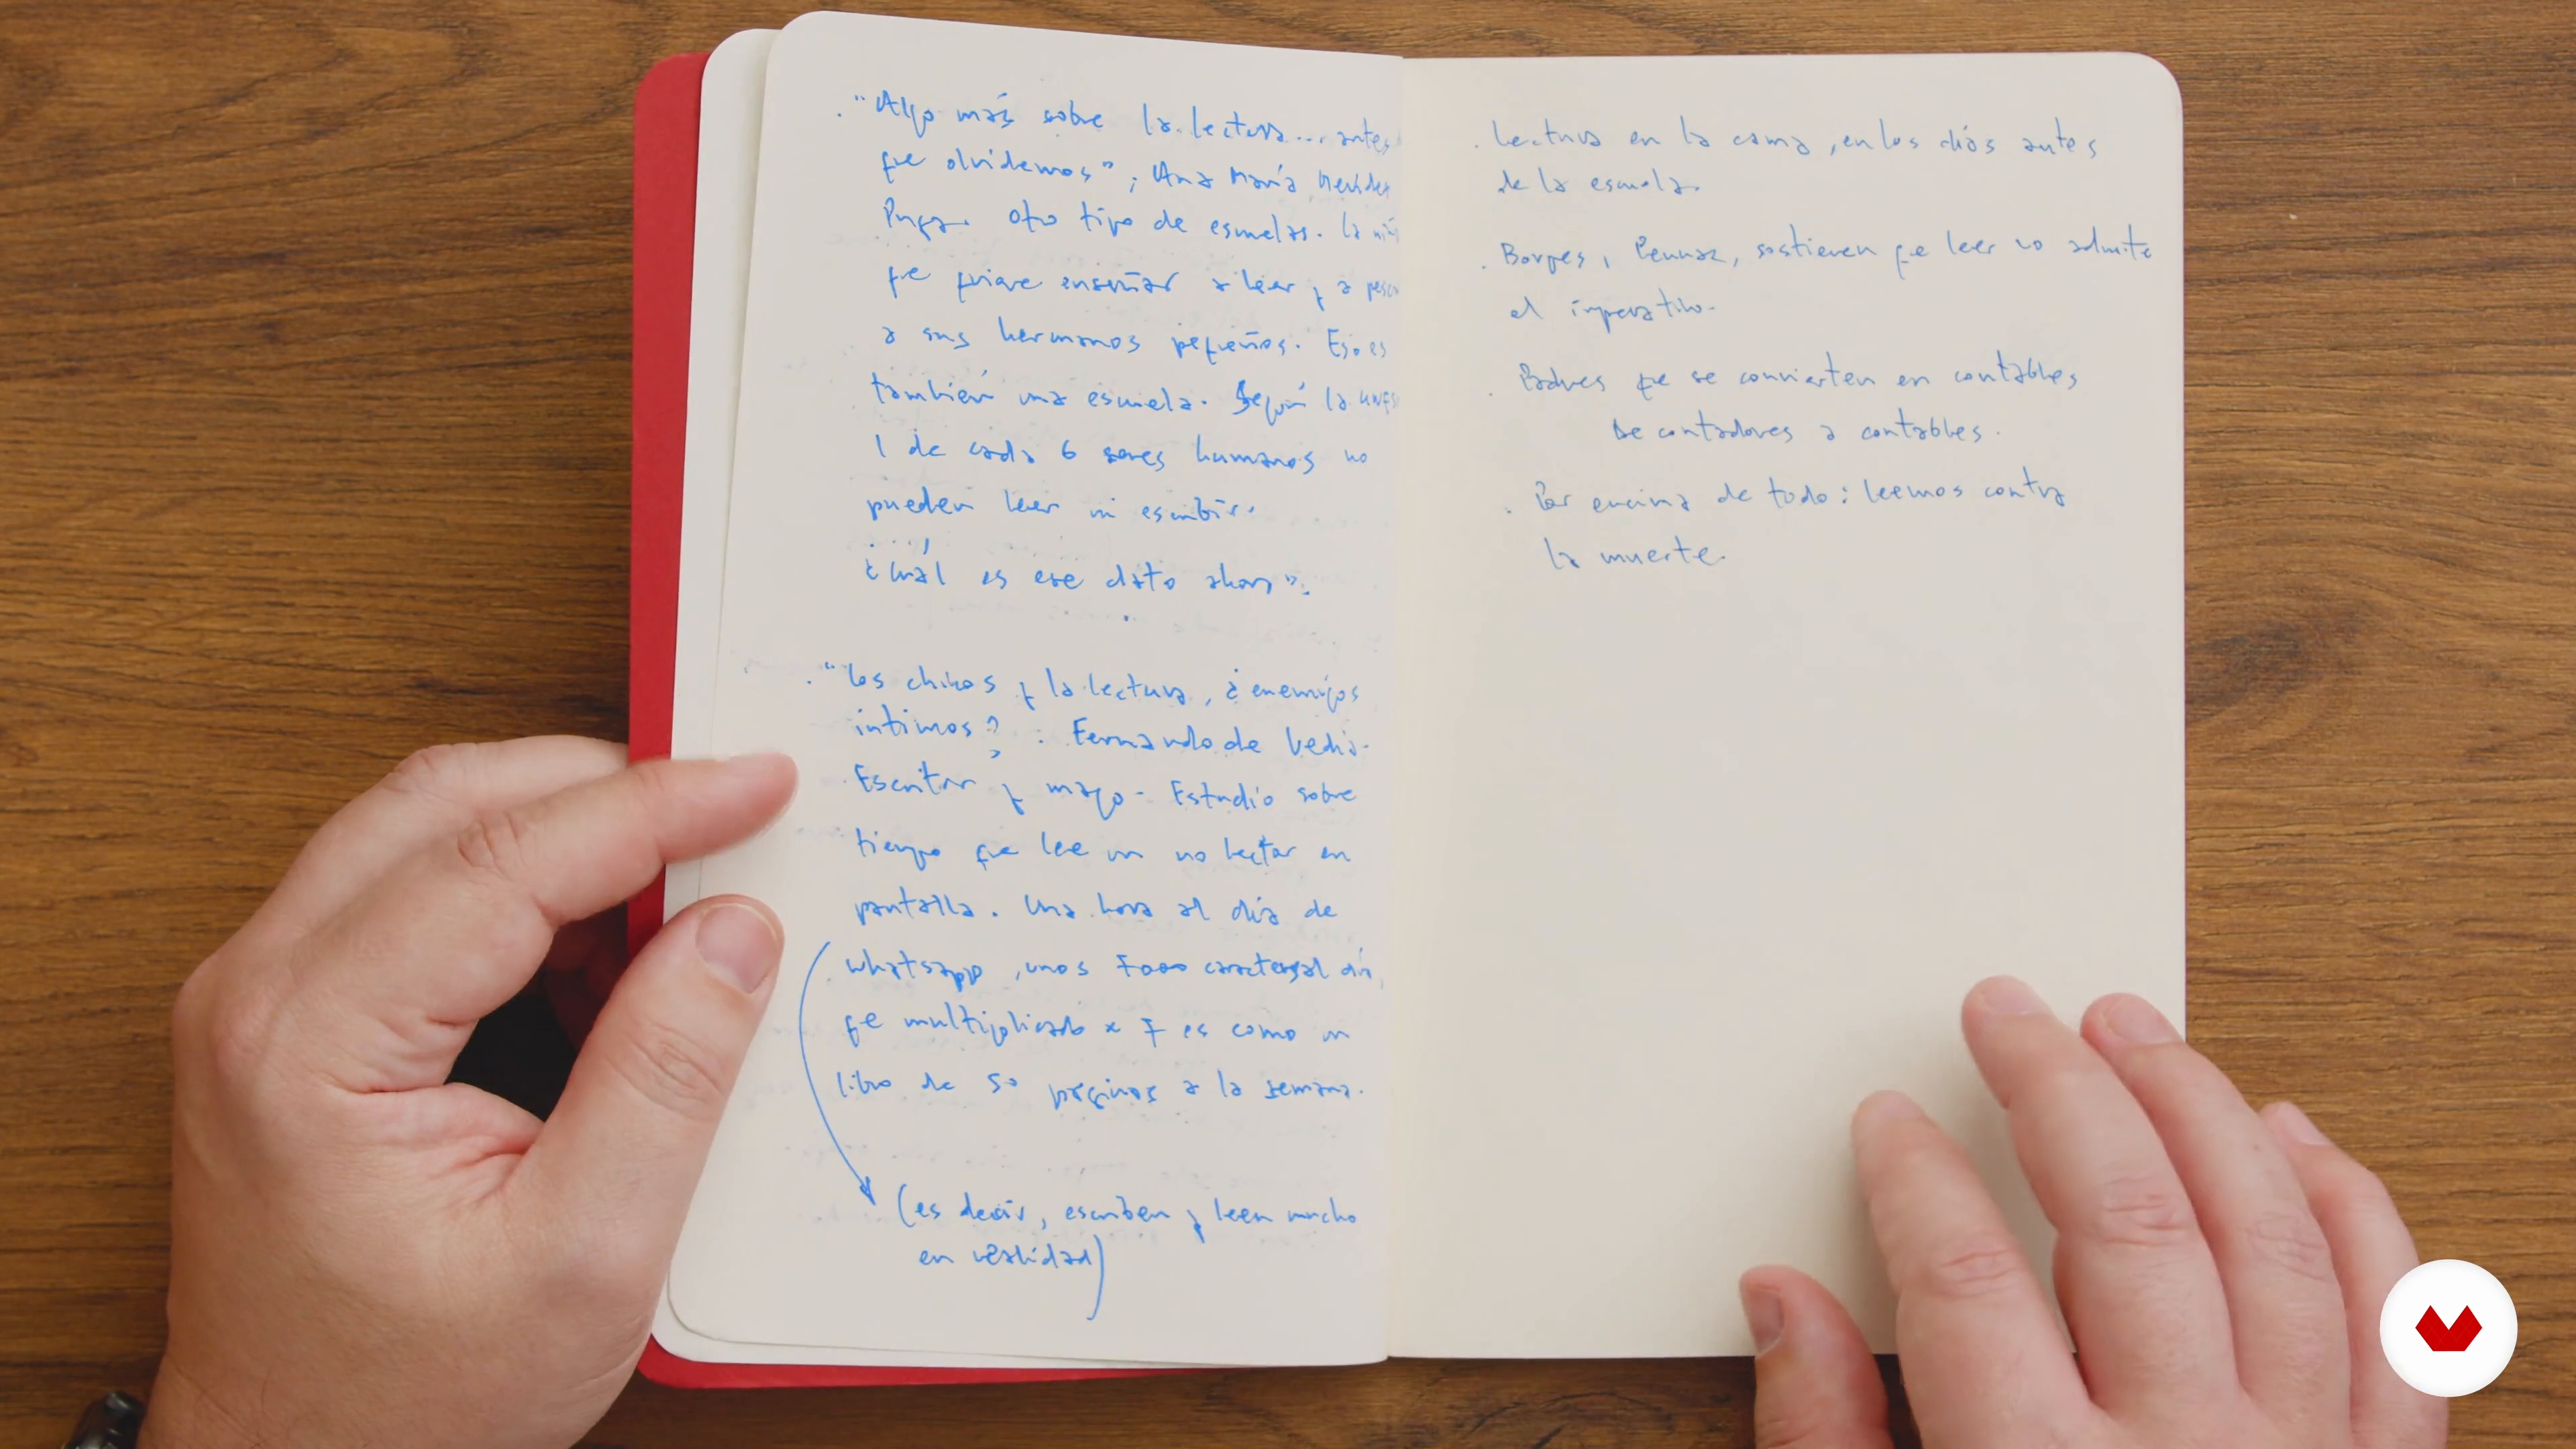 . "Algo más sobre la lectura... antes
que olvidemos", Ana María
Puga. Otro tipo de escuelas. La
que quiere enseñar a leer y a
a sus hermanos pequeños. Eso es
también una escuela. Según la
1 de cada 6 seres humanos no
pueden leer ni escribir.
¿Cuál es ese dato ahora".
. "Los chicos y la lectura, ¿enemigos
íntimos? : Fernando de Vedia.
Escritor y mago - Estudio sobre
tiempo que lee un no lector en
pantalla. Una hora al día de
whatsapp, unos 7000 caracteres al día,
que multiplicado x 7 es como un
libro de 50 páginas a la semana.
(es decir, escriben y leen mucho
en realidad)
. Lectura en la cama, en los días antes
de la escuela.
. Borges, Pennac, sostienen que leer no admite
el imperativo.
. Padres que se convierten en contables
De contadores a contables.
. Por encima de todo: leemos contra
la muerte.